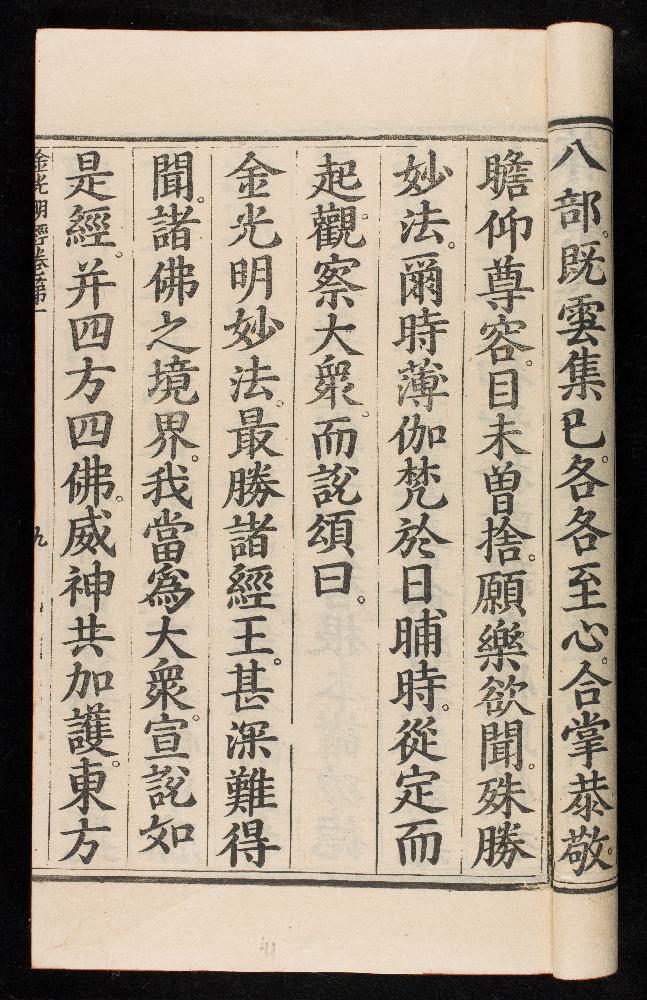 八部。既雲集已。各各至心。合掌恭敬。
瞻仰尊容。目未曾捨。願樂欲聞。殊勝
妙法。爾時薄伽梵於日晡時。從定而
起。觀察大衆。而說頌曰。
金光明妙法。最勝諸經王。甚深難得
聞。諸佛之境界。我當為大衆。宣說如
是經。并四方四佛。威神共加護。東方
金光明經卷第一
九